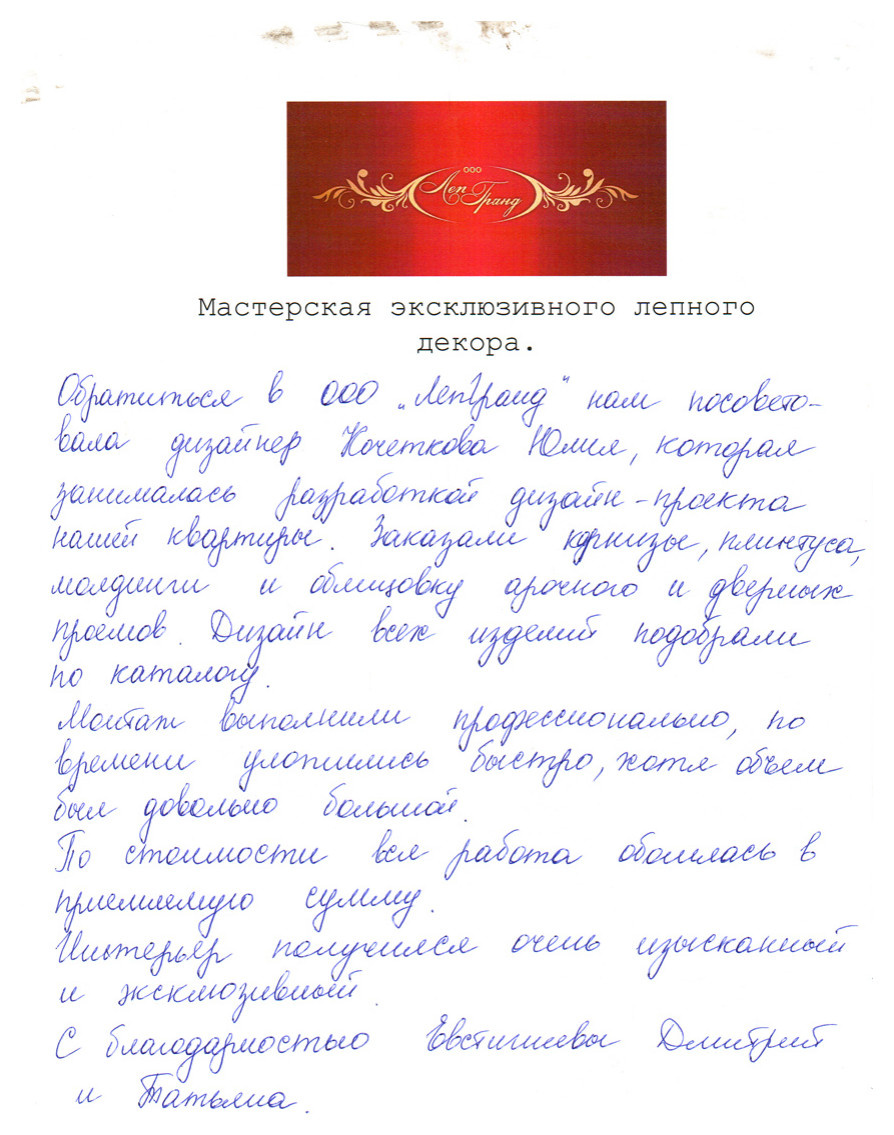 ООО
Леп Гранд
Мастерская эксклюзивного лепного
декора.
Обратиться в ООО „ЛепГранд" нам посовето-
вала дизайнер Кочеткова Юлия, которая
занималась разработкой дизайн-проекта
нашей квартиры. Заказали карнизы, плинтуса,
молдинги и облицовку арочного и дверных
проемов. Дизайн всех изделий подобрали
по каталогу.
Монтаж выполнили профессионально, по
времени уложились быстро, хотя объем
был довольно большой.
По стоимости вся работа обошлась в
приемлемую сумму.
Интерьер получился очень изысканный
и эксклюзивный.
С благодарностью Евстигневы Дмитрий
и Татьяна.